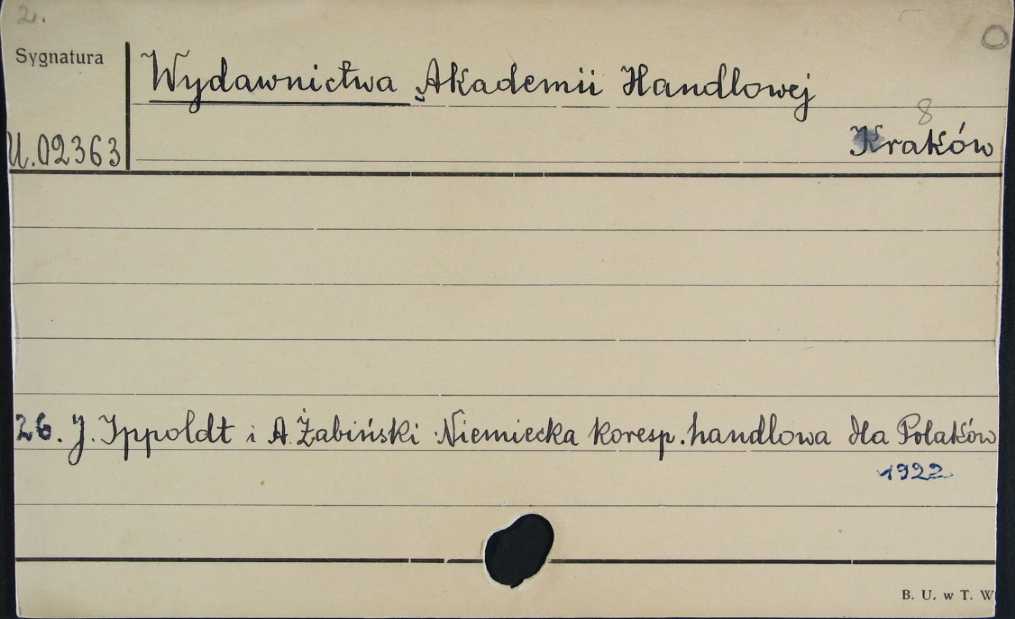 2.
Sygnatura
Wydawnictwa Akademii Handlowej
8
U.02363
Kraków
26. J. Ippoldt i A. Żabiński Niemiecka koresp. handlowa dla Polaków
1922
B. U. w T. W